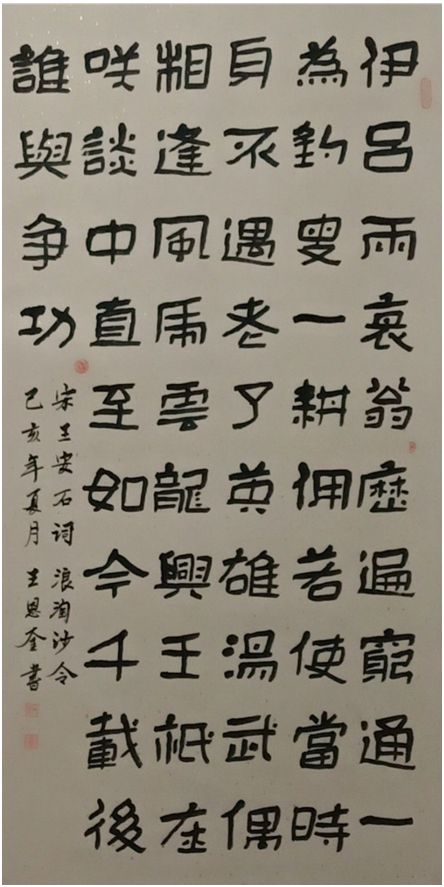 伊呂兩衰翁歷遍窮通一
為釣叟一耕佣若使當時
身不遇老了英雄湯武偶
相逢風虎雲龍興王祇在
咲談中直至如今千載後
誰與争功
宋王安石词 浪淘沙令
己亥年夏月 王恩奎書